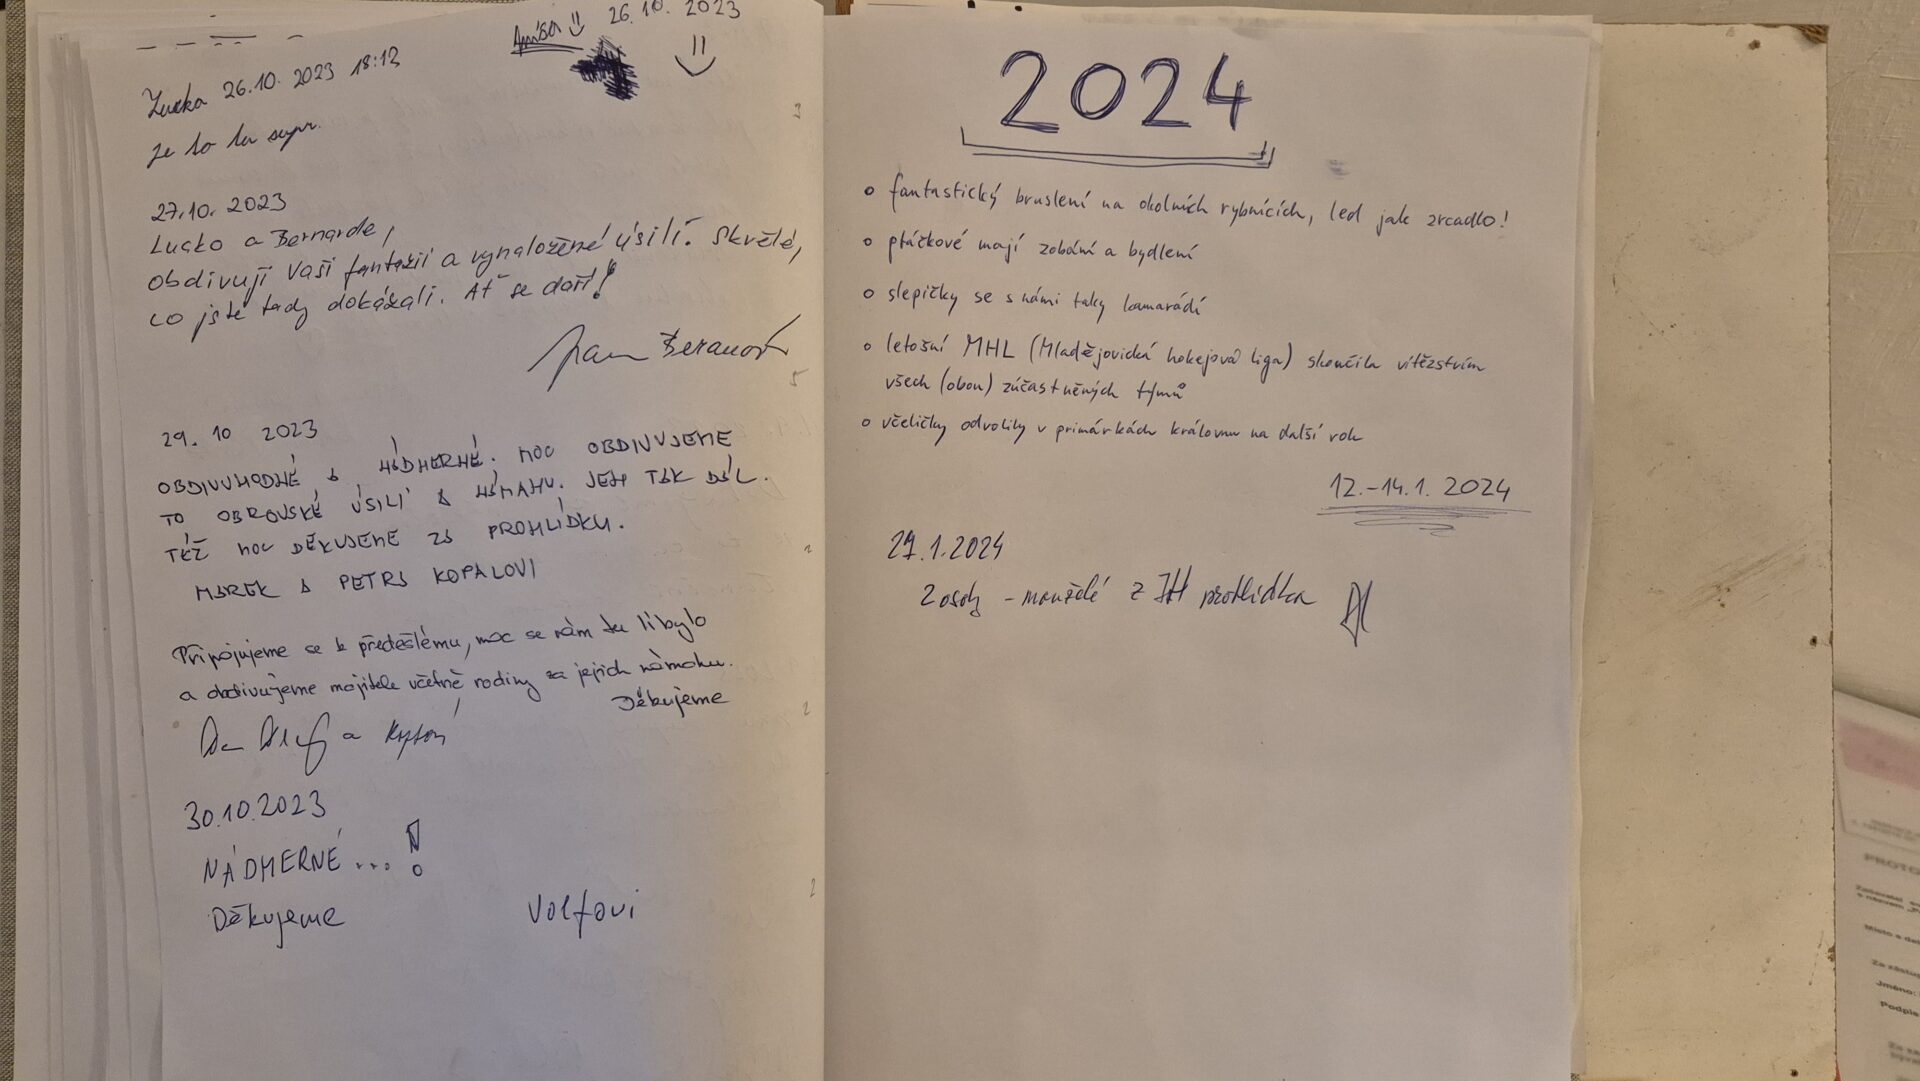 26.10.2023
26.10.2023 18:12
je to tu supr.
27.10.2023
Lucko a Bernarde,
obdivuji Vaši fantazii a vynaložené úsilí. Skvělé,
co jste tady dokázali. Ať se daří!
29.10 2023
OBDIVUHODNÉ A NÁDHERNÉ. MOC OBDIVUJEME
TO OBROVSKÉ ÚSILÍ A NÁMAHU. JEN TAK DÁL.
TÉŽ MOC DĚKUJEME ZA PROHLÍDKU.
MAREK A PETRA KOPALOVI
Připojujeme se k předešlému, moc se nám tu líbylo
a obdivujeme majitele včetně rodiny za jejich námahu.
Děkujeme
a
30.10.2023
NÁDHERNÉ...!
Děkujeme Volfovi
2024
o fantastický bruslení na okolních rybnících, led jak zrcadlo!
o ptáčkové mají zobání a bydlení
o slepičky se s námi taky kamarádí
o letošní MHL (Mladějovická hokejová liga) skončila vítězstvím
všech (obou) zúčastněných týmů
o včeličky odvolily v primárkách královnu na další rok
12.-14.1. 2024
27.1.2024
2 osoby - manželé z JH prohlídka